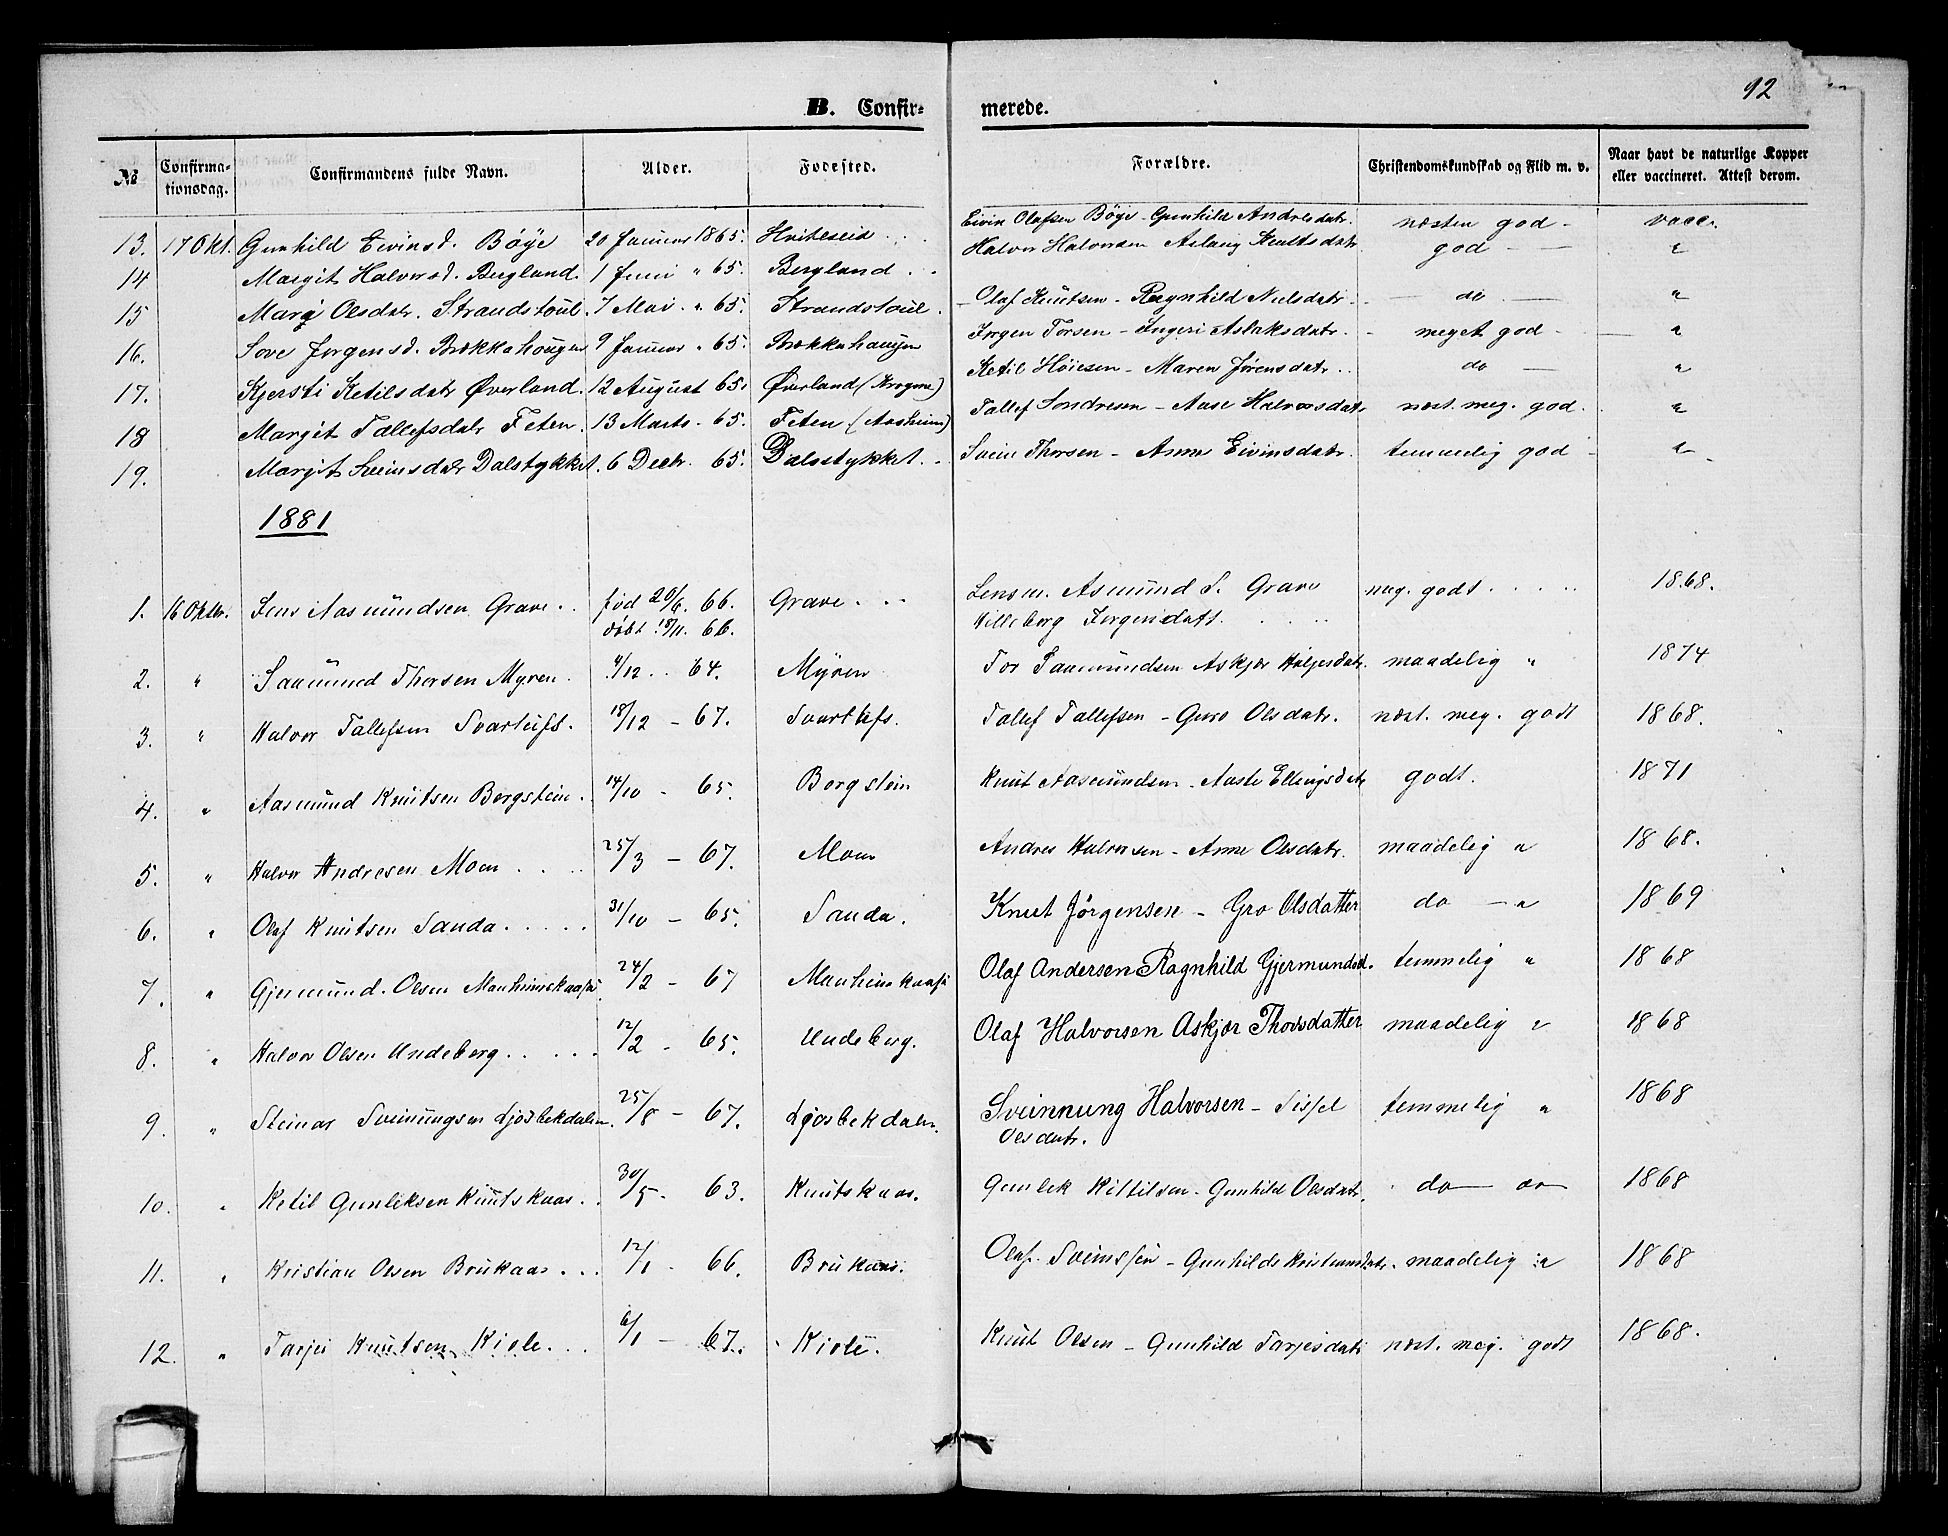 92
B. Confir- merede.
№ Confirma-tionsdag. Confirmandens fulde Navn. Alder. Fødested. Forældre. Christendomskundskab og Flid m. v. Naar havt de naturlige Kopper eller vaccineret. Attest derom.
13. 17 Okt. Gunhild Eivinsd. Bøye 20 Januar 1865. Hviteseid Eivin Olafsen Bøye - Gunhild Andresdatr. næsten god - vacc.
14 Margit Halvorsd. Bergland. 1 Juni " 65. Bergland Halvor Halvorsen Aslaug Knutsdatr. god - "
15 Margi Olsdatr. Strandstoul. 7 Mai " 65. Strandstoul. Olaf Knutsen - Ragnhild Nielsdatr. do "
16. Sove Jørgensd. Brækkehougen 9 Januar " 65. Brækkehaugen Jrgen Torsen - Ingeri Aslaksdatr. - meget god - "
17. Kjersti Ketilsdatr Øverland. 12 August 65. Øverland Ketil Høiesen - Maren Jørensdatr. do - "
18 Margit Tallefsdatr Feten. 13 Marts - 65. Feten (Aasheim) Tallef Sondresen - Aase Halvorsdatr næst. meg. god. "
19. Margit Sveinsdatr Dalstykket. 6 Decbr. 65. Dalsstykket. Svein Thorsen - Anne Eivinsdatr. temmelig god "
1881
1. 16 Oktbr. Jens Aasmundsen Grave. født 20/6. 66. Grave. Lensm. Asmund S. Grave meg. godt 1868.
døbt 18/11. 66. Villeborg Jørgensdatt.
2. " Saamund Thorsen Myren. 4/12 64. Myren Tor Saamundsen Askjær Høljesdatr. maadelig " 1874
3. " Halvor Tallefsen Svartufs. 18/12 - 67. Svartufs. Tallef Tallefsen - Guro Olsdatr. næst. meg. godt 1868.
4. " Aasmund Knutsen Borgstein. 14/10 - 65. Borgstein Knut Aasmundsen - Aaste Ellingsdatr godt. 1871
5. " Halvor Andresen Moen 25/3 - 67. Moen Andres Halvorsen - Anne Olsdatr. maadelig " 1868.
6. " Olaf Knutsen Sanda. 31/10 - 65. Sanda. Knut Jørgensen - Gro Olsdatter do - " 1869
7. " Gjermund Olsen Manheimskaasa 24/2 - 67 Manheimskaasa Olaf Andersen Ragnhild Gjermundsd. temmelig " 1868
8. " Halvor Olsen Undeberg. 12/2 - 65. Undeberg. Olaf Halvorsen Askjær Thorsdatter maadelig " 1868
9. " Steinar Sveinungsen Ljosbekdalen. 25/8 - 67. Ljosbekdalen. Sveinnung Halvorsen - Sissel temmelig " 1868
Olsdatr.
10. " Ketil Gunleksen Knutskaas. 30/5 - 63. Knutskaas. Gunlek Kittilsen - Gunhild Olsdatr. do do 1868
11. " Kristian Olsen Brukaas. 12/1 - 66. Brukaas. Olaf Sveinssen - Gunhild Kristiansdatr. maadelig " 1868
12. " Tarjei Knutsen Kiole. 6/1 - 67. Kiole. Knut Olsen - Gunhild Tarjesdatr næst. meg. godt 1868.